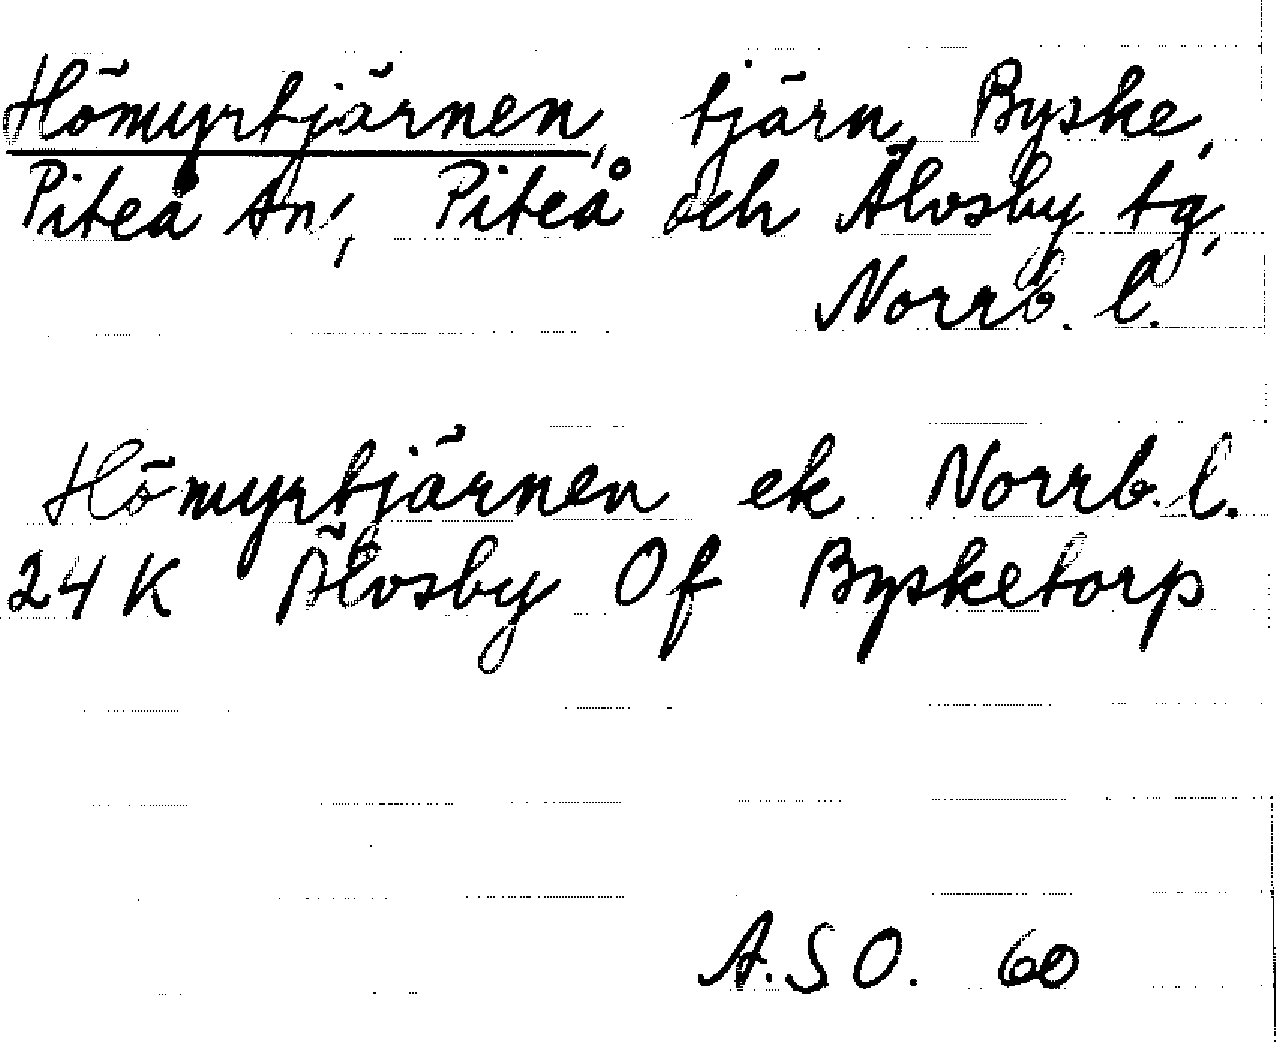 Hömyrtjärnen, tjärn, Byske,
Piteå sn, Piteå och Älvsby tg,
Norrb. l.
Hömyrtjärnen ek Norrb. l.
24 K Älvsby Of Bysketorp
A.S.O. 60